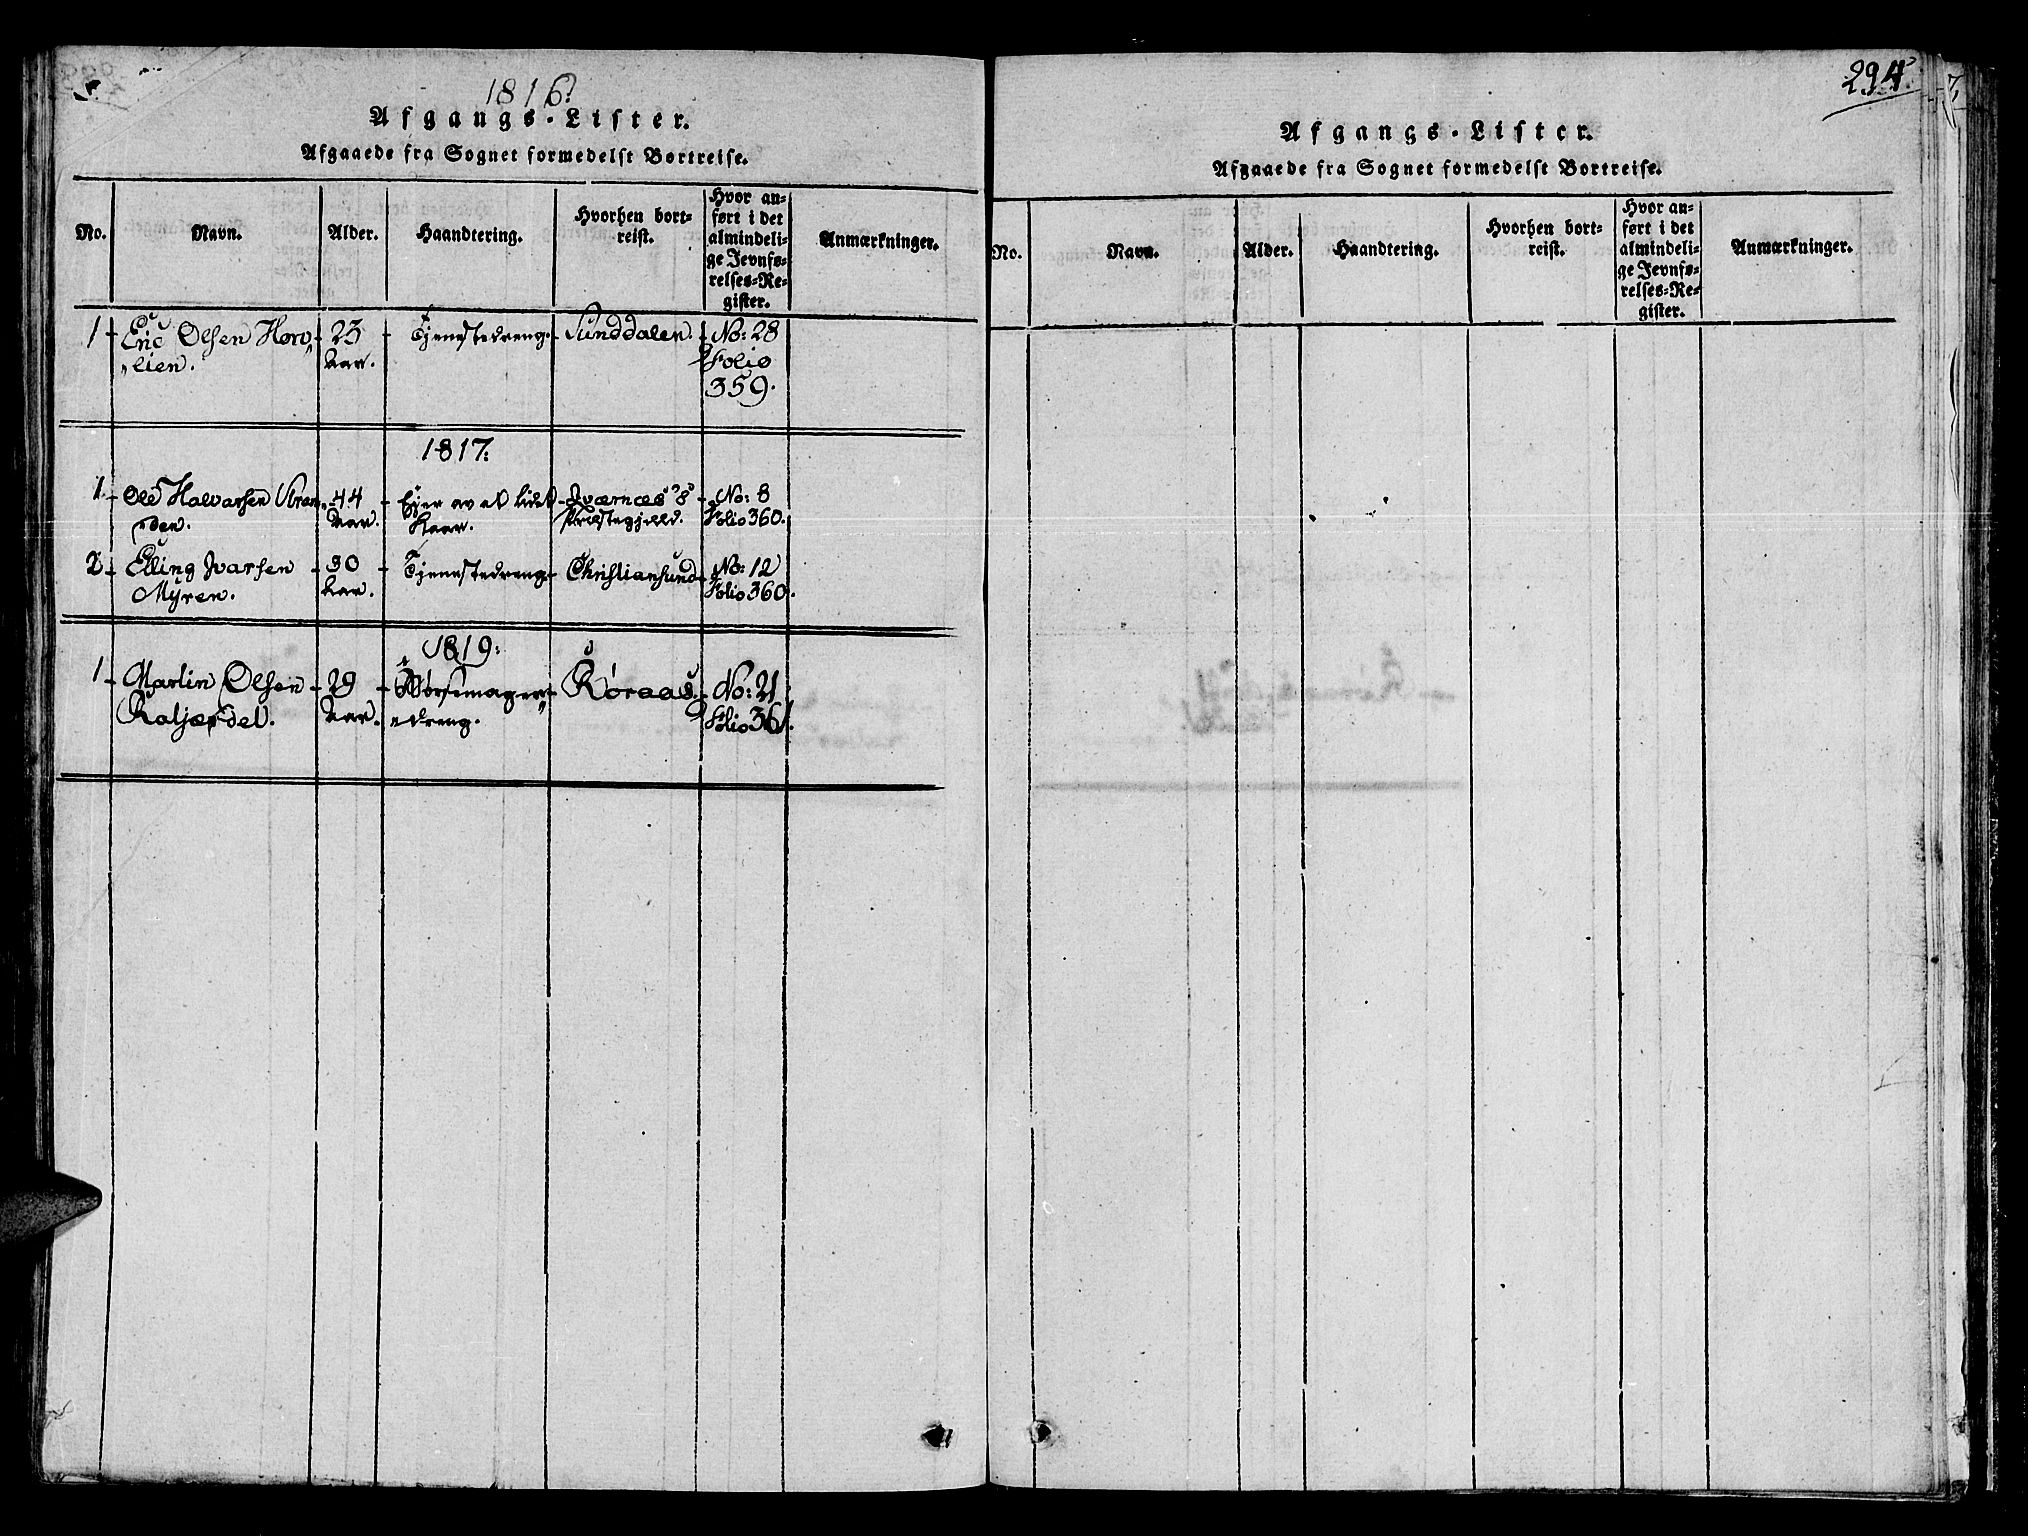 1816.
Afgangs-Lister.
Afgaaede fra Sognet formedelst Bortreise.
No. Navn. Alder. Haandtering. Hvorhen bort-
reist. Hvor an-
ført i det
almindeli-
ge Jevnfø-
relses-Re-
gister. Anmærkninger.
1 Eric Olsen 23 Tjenestedreng. Sunddalen. No: 28
lien. Aar. Folio
359.
1817.
1. Ole Halvarsen 44 Ejer av et lidet No: 8
den. Aar. Præstegjeld. Folio 360.
2 Elling Ivarsen 30 Tjenestedreng Christiansund No: 12
Myren. Aar. Folio 360.
1819.
1 Martin Olsen 29 Børsemager Røraas. No: 21
Aar. dreng. Folio 361.
294.
Afgangs-Lister.
Afgaaede fra Sognet formedelst Bortreise.
No. Navn. Alder. Haandtering. Hvorhen bort-
reist. Hvor an-
ført i det
almindeli-
ge Jevnfø-
relses-Re-
gister. Anmærkninger.